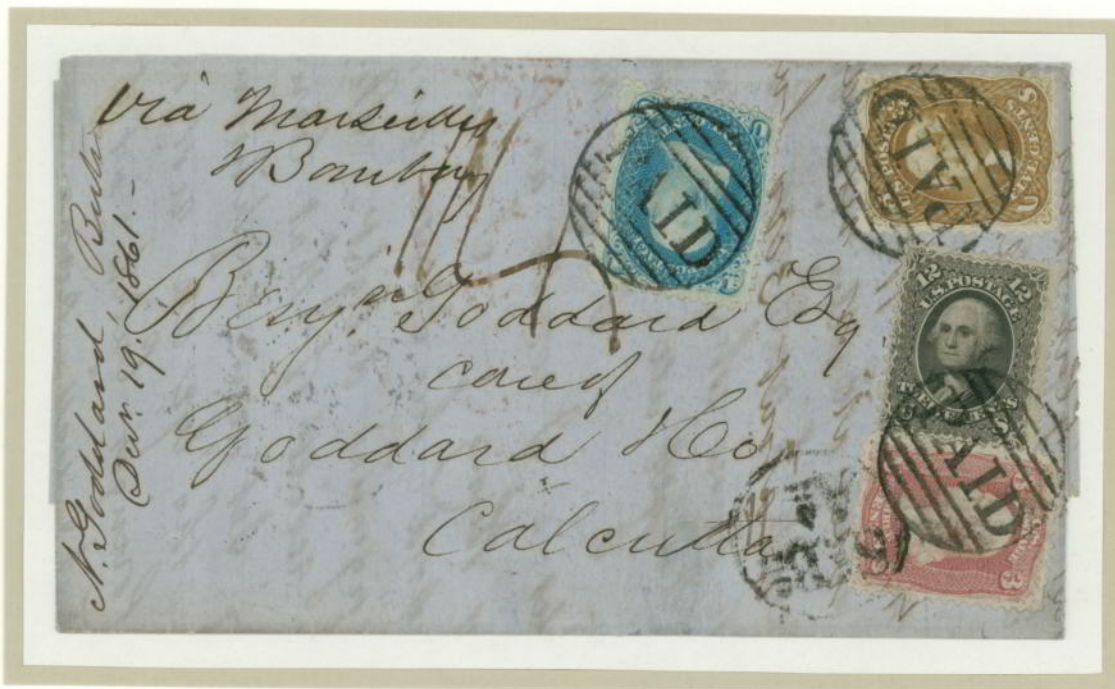 via Marseilles
& Bombay
N. Goddard, Boston
Decr. 19, 1861.-
Benjn Goddard Esq
care of
Goddard & Co
Calcutta
PAID
PAID
PAID
U.S. POSTAGE
12 12
U.S. POSTAGE
TWELVE CENTS
3